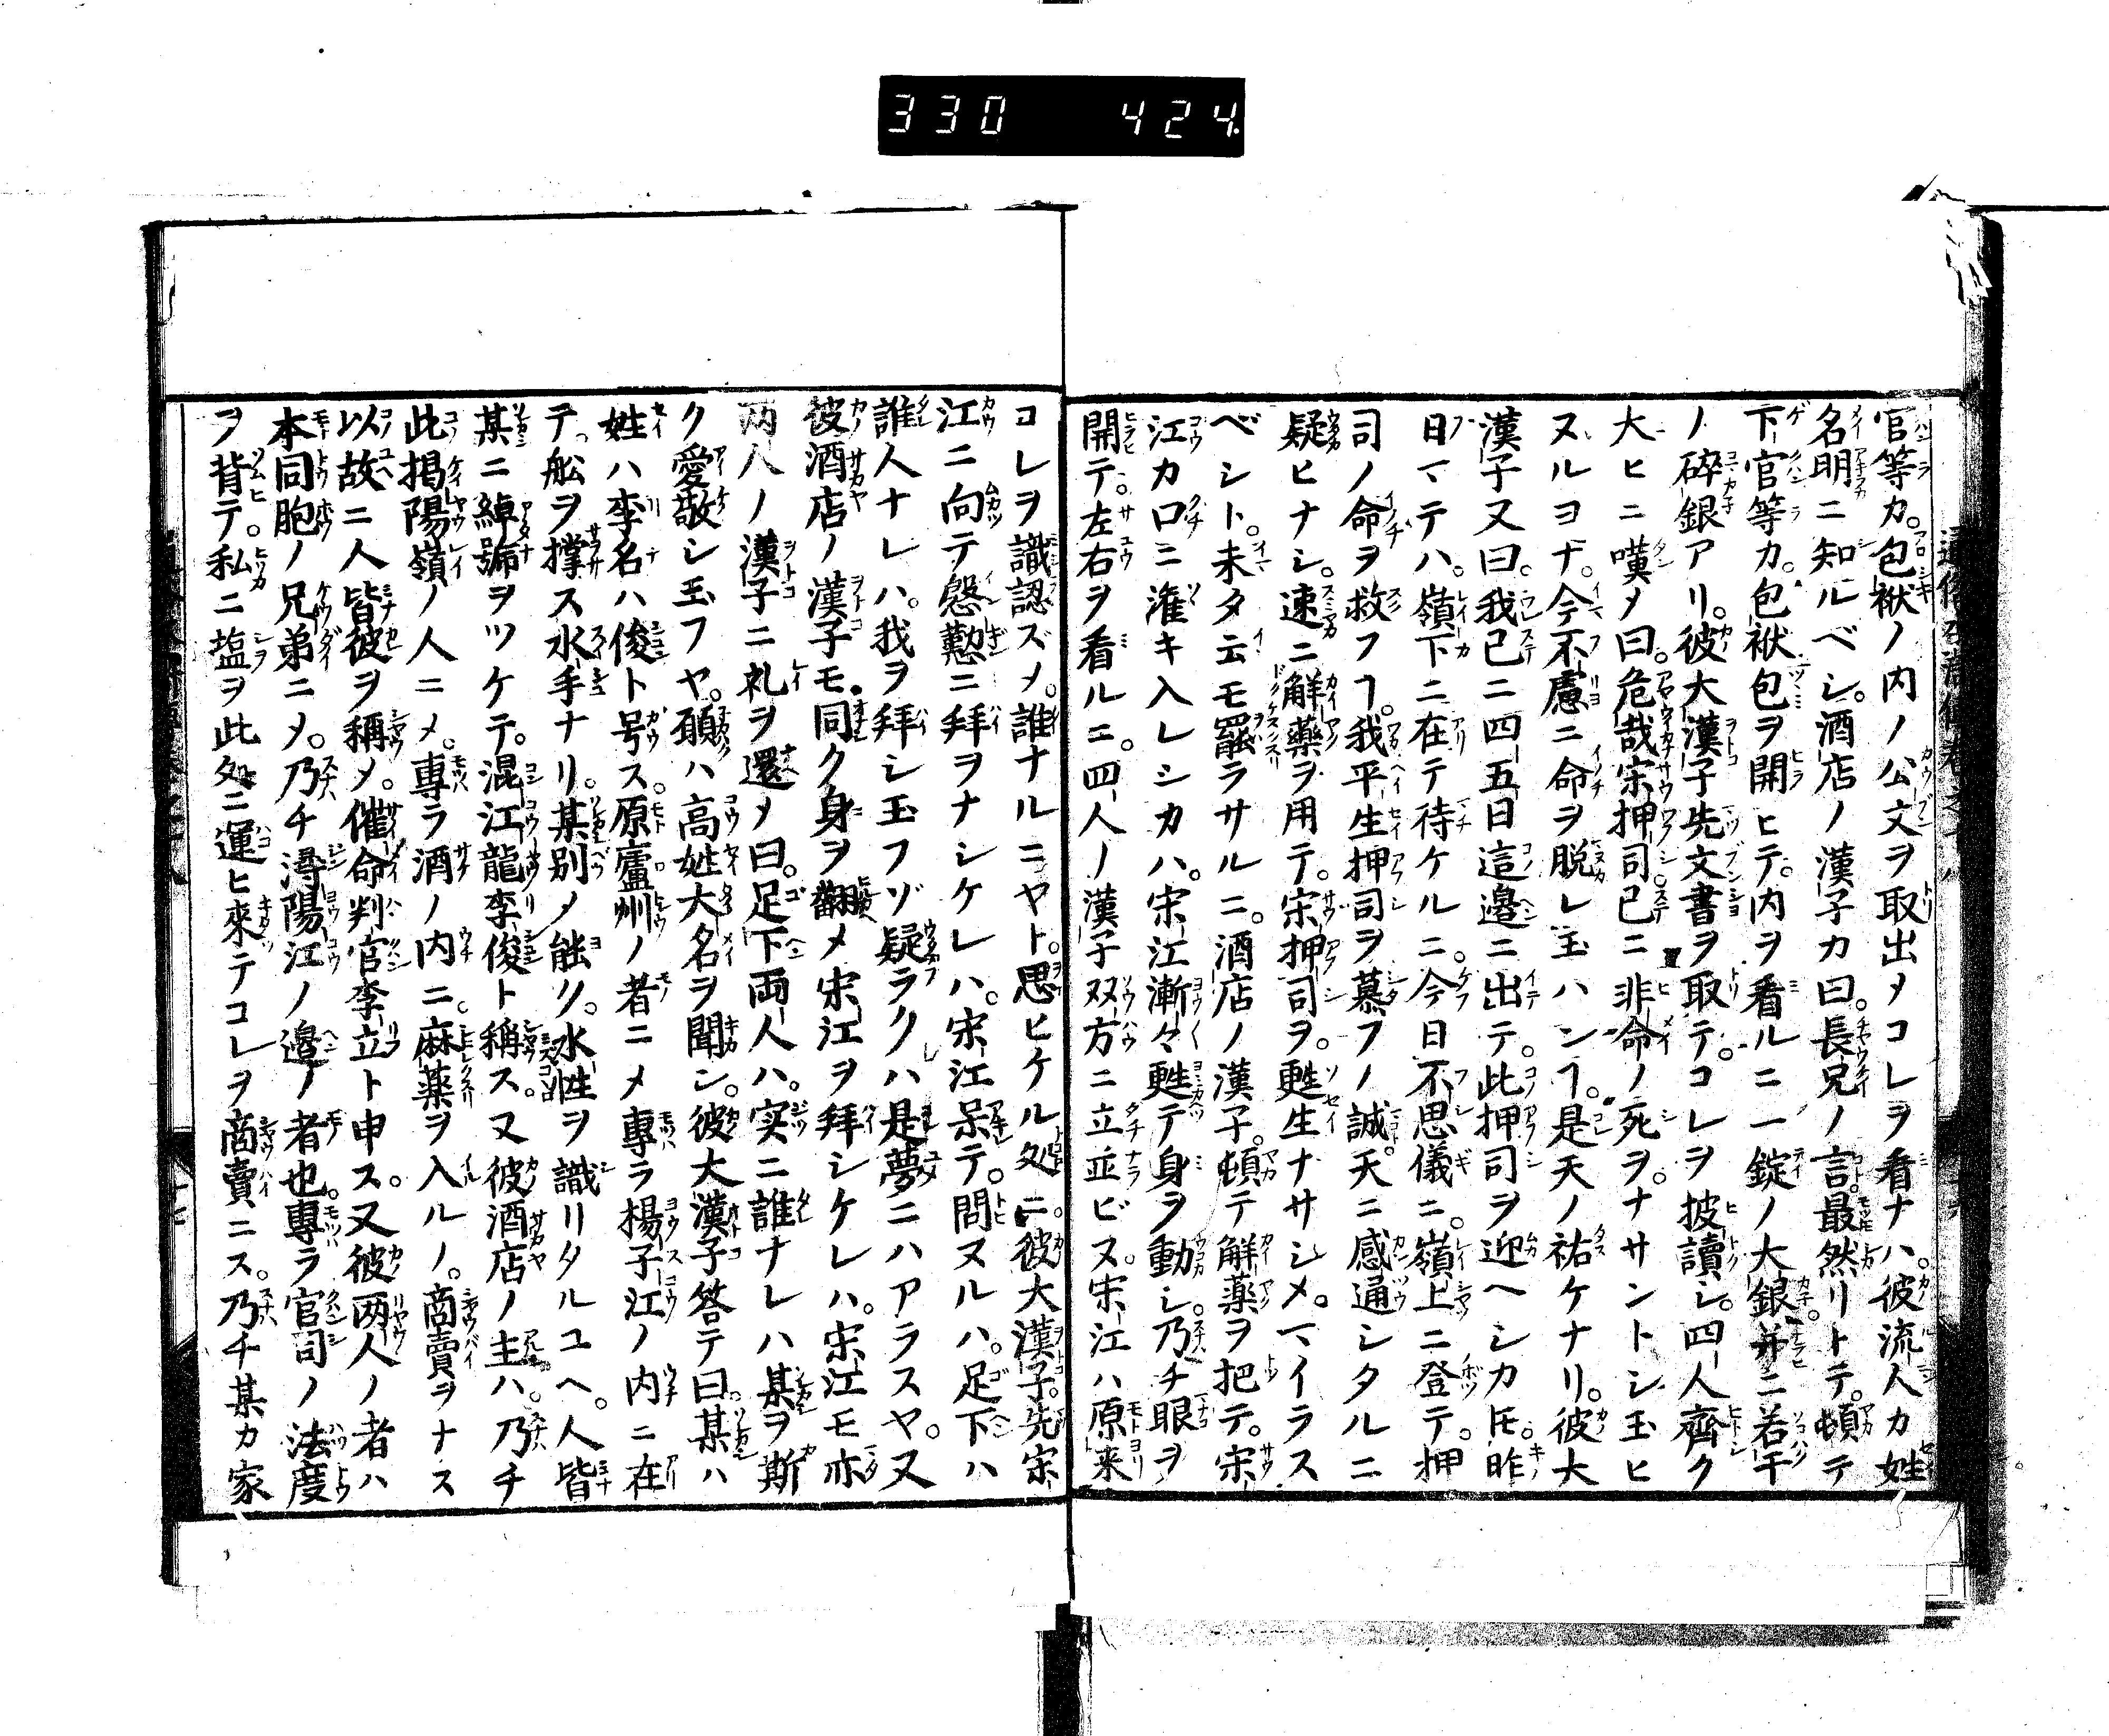 330 424.
官等カ。包袱ノ内ノ公文ヲ取出メコレヲ看ナハ。彼流人カ姓
名明ニ知ルベシ。酒店ノ漢子カ曰。長兄ノ言。最然リトテ。頓テ
下官等カ。包袱包ヲ開ヒテ。内ヲ看ルニ一錠ノ大銀并ニ若干
ノ碎銀アリ。彼大漢子先文書ヲ取テ。コレヲ披讀シ。四人齊ク
大ヒニ嘆メ曰。危哉宋押司已ニ非命ノ死ヲ。ナサントシ玉ヒ
ヌルヨナ。今不慮ニ命ヲ脱レ玉ハンヿ。是天ノ祐ケナリ。彼大
漢子又曰。我已ニ四五日這邉ニ出テ。此押司ヲ迎ヘシカ𪜈。昨
日マテハ。嶺下ニ在テ待ケルニ。今日不思儀ニ。嶺上ニ登テ。押
司ノ命ヲ救フヿ。我平生押司ヲ慕フノ誠。天ニ感通シタルニ
疑ヒナシ。速ニ解藥ヲ用テ。宋押司ヲ。甦生ナサシメ。マイラス
ベシト。未タ云モ罷ラサルニ。酒店ノ漢子。頓テ解薬ヲ把テ。宋
江カ口ニ潅キ入レシカハ。宋江漸々甦テ身ヲ動シ。乃チ眼ヲ
開テ。左右ヲ看ルニ。四人ノ漢子双方ニ立並ビヌ。宋江ハ原来
コレヲ識認ズメ。誰ナルニヤト。思ヒケル処ニ。彼大漢子。先宋
江ニ向テ慇懃ニ拜ヲナシケレハ。宋江呆テ。問ヌルハ。足下ハ
誰人ナレハ。我ヲ拜シ玉フゾ疑ラクハ是夢ニハアラスヤ。又
彼酒店ノ漢子モ。同ク身ヲ飜メ宋江ヲ拜シケレハ。宋江モ亦
两人ノ漢子ニ礼ヲ還メ曰。足下両人ハ。実ニ誰ナレハ某ヲ斯
ク愛敬シ玉フヤ。願ハ高姓大名ヲ聞ン。彼大漢子答テ曰。某ハ
姓ハ李名ハ俊ト号ス。原廬州ノ者ニメ專ラ揚子江ノ内ニ在
テ。舩ヲ撑ス水手ナリ。某別メ能ク。水性ヲ識リタルユヘ。人皆
某ニ綽號ヲツケテ。混江龍李俊ト稱ス。又彼酒店ノ主ハ。乃チ
此掲陽嶺ノ人ニメ。專ラ酒ノ内ニ。麻薬ヲ入ルノ。商賣ヲナス
以故ニ人皆彼ヲ稱メ。催命判官李立ト申ス。又彼两人ノ者ハ
本同胞ノ兄弟ニメ。乃チ潯陽江ノ邉ノ者也。專ラ官司ノ法度
ヲ背テ。私ニ塩ヲ此処ニ運ヒ來テコレヲ商賣ニス。乃チ某カ家